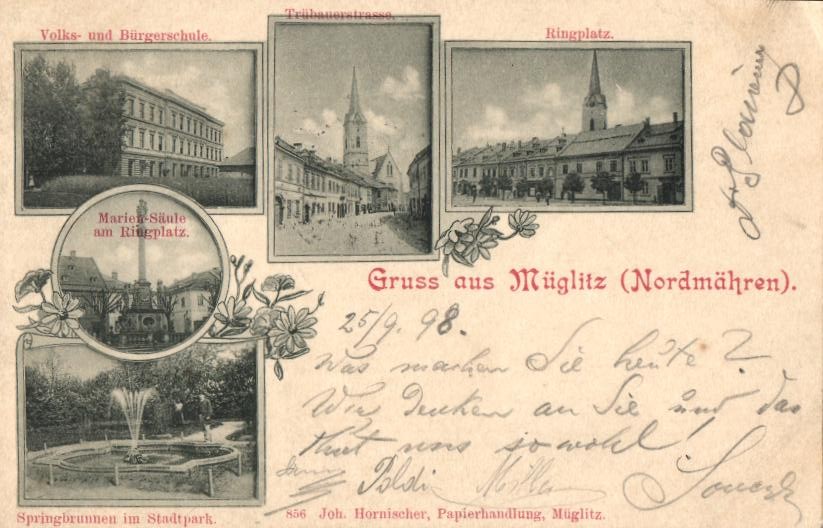 Volks- und Bürgerschule.
Trübauerstrasse.
Ringplatz.
Marien-Säule
am Ringplatz.
Gruss aus Müglitz (Nordmähren).
25/9. 98.
Was machen Sie heute?
Wir Denken an Sie und das
thut uns so wohl!
Poldi
Springbrunnen im Stadtpark.
856 Joh. Hornischer, Papierhandlung, Müglitz.